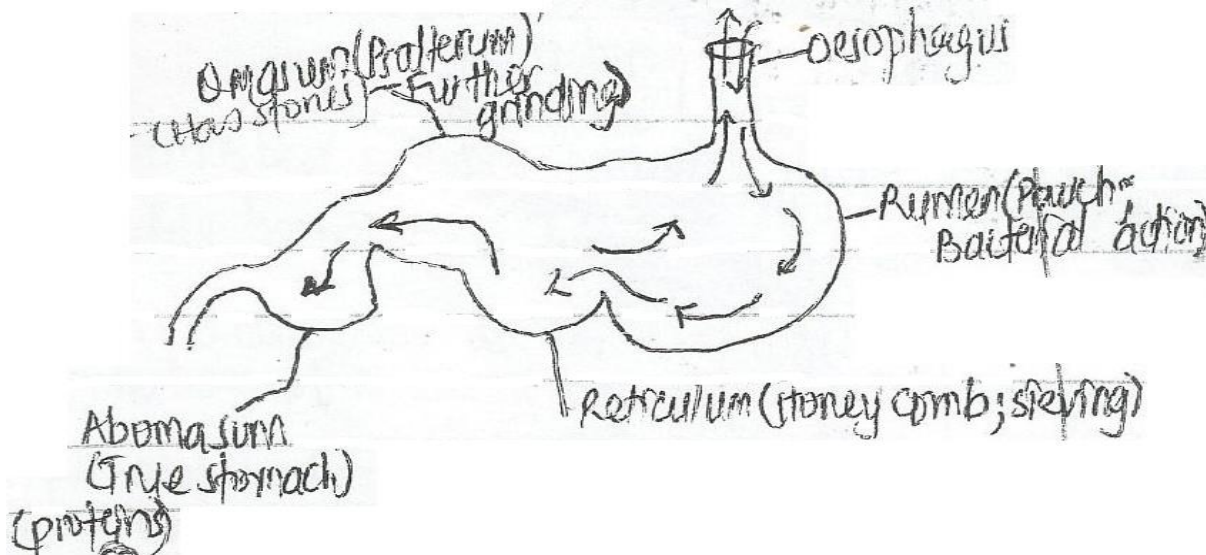 Omasum (Psalterum)
(Has stones) - Further
grinding)
Oesophagus
Rumen (Pauch -
Bacterial action)
Reticulum (Honey comb; sieving)
Abomasum
(True stomach)
(proteins)